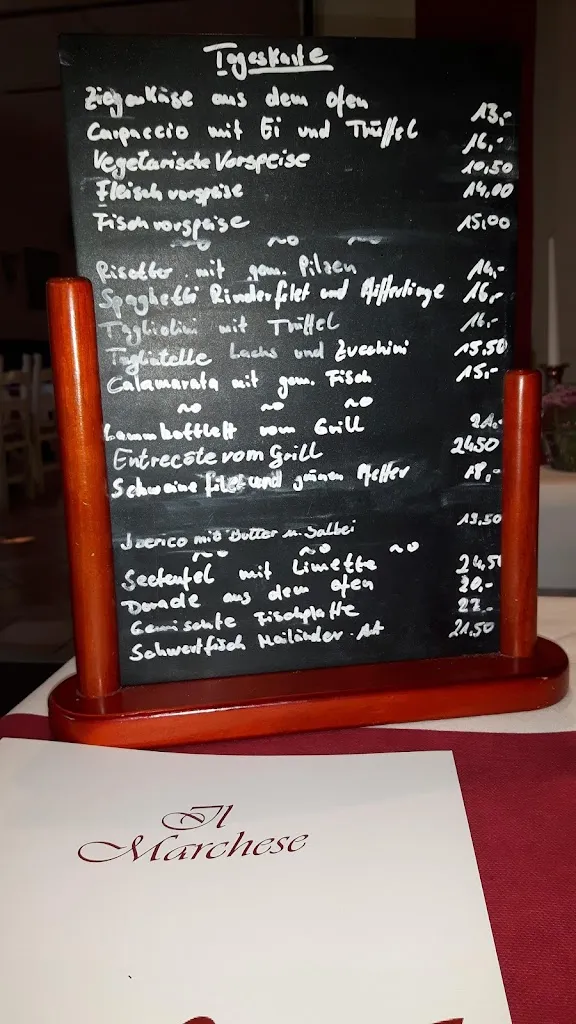 Tageskarte
Ziegenkäse aus dem Ofen 13,-
Carpaccio mit Ei und Trüffel 16,-
Vegetarische Vorspeise 10,50
Fleischvorspeise 14,00
Fischvorspeise 15,00
mit gem. Pilzen 14,-
Spaghetti Rinderfilet und Pfifferlinge 16,-
Tagliolini mit Trüffel 16,-
Tagliatelle Lachs und Zucchini 15,50
Calamarata mit gem. Fisch 15,-
Lammkottlett vom Grill 21,-
Entrecôte vom Grill 24,50
Schweinefilet und grünen Pfeffer 18,-
Iberico mit Butter u. Salbei 19,50
Seeteufel mit Limette 24,50
Dorade aus dem Ofen 20,-
Gemischte Fischplatte 22,-
Schwertfisch Mailänder Art 21,50
Il
Marchese